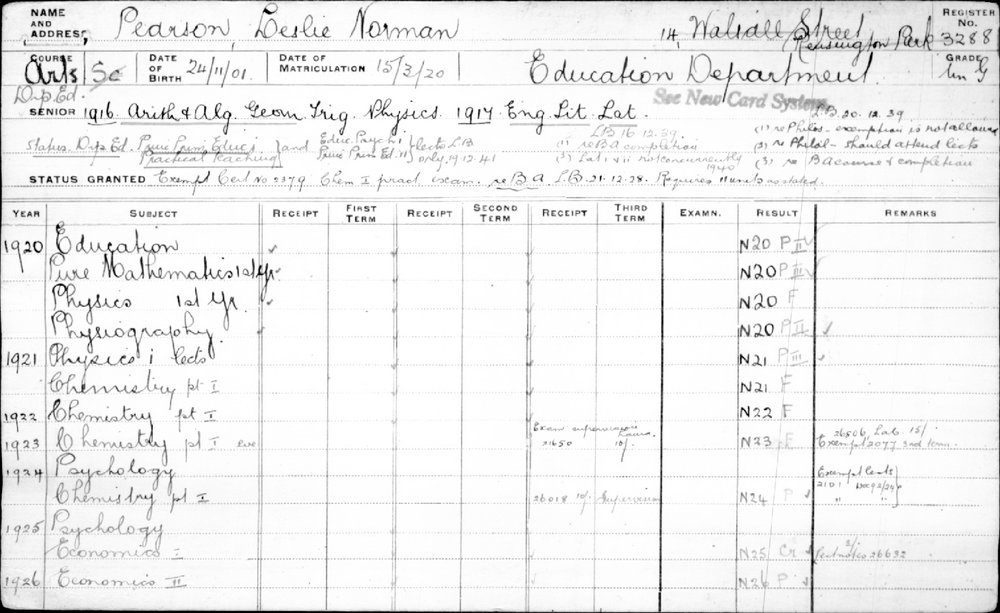 NAME AND ADDRESS Pearson, Leslie Norman 14, Walsall Street Kensington Park REGISTER No. 3288
COURSE Arts / Sc DATE OF BIRTH 24/11/01. DATE OF MATRICULATION 15/3/20 Education Department. GRADE Un G
Dip. Ed. See New Card System
SENIOR 1916. Arith & Alg. Geom. Trig. Physics. 1917 Eng. Lit. Lat. L.B 20.12.39
L.B 16.12.39. (1) re Philos. exemption is not allowed
Status. Dip Ed. Princ Prim Educ. Practical Teaching } and Educ. Psych I Princ Prim Ed. II } lects L.B only, 19.12.41 (1) re B.A completion (2) re Philol - should attend lects
(3) Lat. i & ii not concurrently 1940 (3) re B A course & completion
STATUS GRANTED Exempt Cert No 2379 Chem I pract exam. re B A L.B. 21.12.28. Requires 11 units as stated.
YEAR SUBJECT RECEIPT FIRST TERM RECEIPT SECOND TERM RECEIPT THIRD TERM EXAMN. RESULT REMARKS
1920 Education N20 P II
Pure Mathematics 1st Yr. N20 P III
Physics 1st Yr. N20 F
Physiography N20 P II
1921 Physics i lects N21 P III
Chemistry pt I N21 F
1922 Chemistry pt I N22 F
1923 Chemistry pt I eve Exam supervision 21650 15/. N23 F 26506 Lab 15/- Exempt 2077 3rd term.
1924 Psychology Exempt lects
Chemistry pt I 26018 10/. Supervision N24 P 2101 " "
1925 Psychology
Economics I N25 Cr Lect notes 26632 2/.
1926 Economics II N26 P